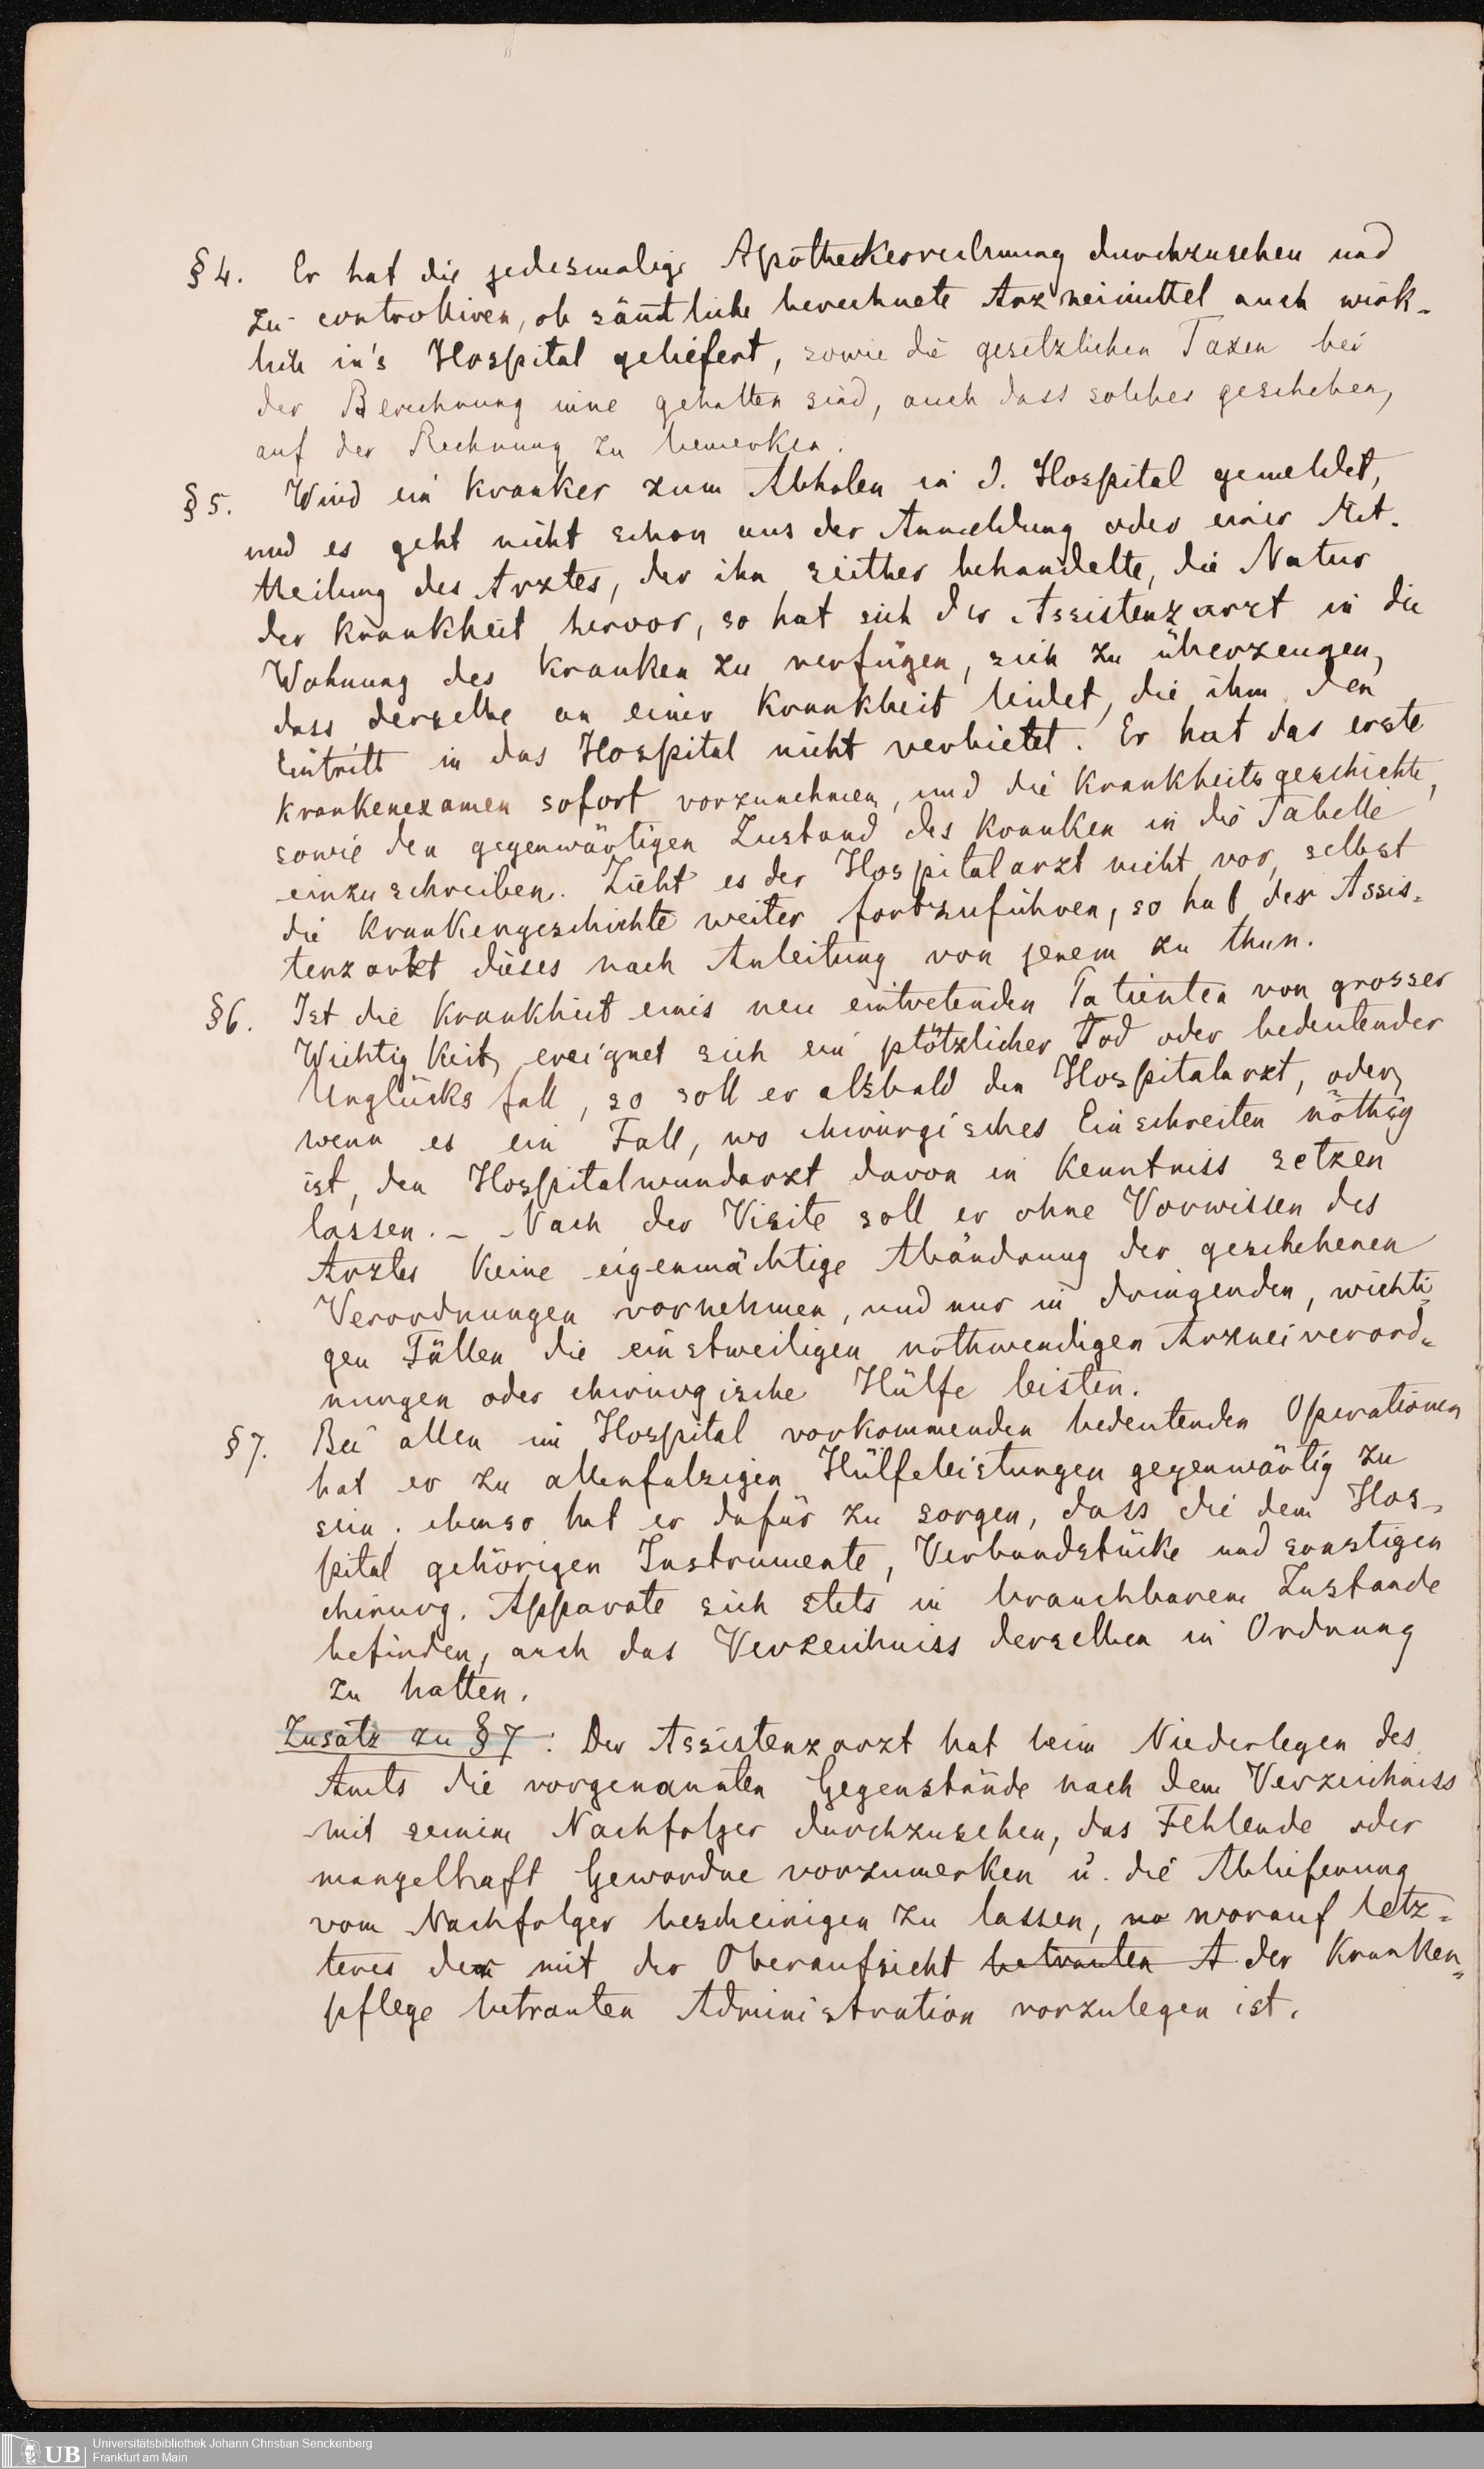 § 4. Er hat die jedesmalige Apothekerrechnung durchzusehen und
zu controlliren, ob sämtliche berechnete Arzneimittel auch wirk-
lich in's Hospital geliefert, sowie die gesetzlichen Taxen bei
der Berechnung inne gehalten sind, auch dass solches geschehen,
auf der Rechnung zu bemerken.
§ 5. Wird ein Kranker zum Abholen in d. Hospital gemeldet,
und es geht nicht schon aus der Anmeldung oder einer Mit-
theilung des Arztes, der ihn seither behandelte, die Natur
der Krankheit hervor, so hat sich der Assistenzarzt in die
Wohnung des Kranken zu verfügen, sich zu überzeugen,
dass derselbe an einer Krankheit leidet, die ihm den
Eintritt in das Hospital nicht verbietet. Er hat das erste
Krankenexamen sofort vorzunehmen, und die Krankheitsgeschichte,
sowie den gegenwärtigen Zustand des Kranken in die Tabelle
einzuschreiben. Zieht es der Hospitalarzt nicht vor, selbst
die Krankengeschichte weiter fortzuführen, so hat der Assis-
tenzarzt dieses nach Anleitung von jenem zu thun.
§ 6. Ist die Krankheit eines neu eintretenden Patienten von grosser
Wichtigkeit, ereignet sich ein plötzlicher Tod oder bedeutender
Unglücksfall, so soll er alsbald den Hospitalarzt, oder,
wenn es ein Fall, wo chirurgisches Einschreiten nöthig
ist, den Hospitalwundarzt davon in Kenntniss setzen
lassen. - Nach der Visite soll er ohne Vorwissen des
Arztes keine eigenmächtige Abändrung der geschehenen
Verordnungen vornehmen, und nur in dringenden, wichti-
gen Fällen die einstweiligen nothwendigen Arzneiverord-
nungen oder chirurgische Hülfe leisten.
§ 7. Bei allen im Hospital vorkommenden bedeutenden Operationen
hat er zu allenfalsigen Hülfeleistungen gegenwärtig zu
sein, ebenso hat er dafür zu sorgen, dass die dem Hos-
pital gehörigen Instrumente, Verbandstücke und sonstigen
chirurg. Apparate sich stets in brauchbarem Zustande
befinden, auch das Verzeichniss derselben in Ordnung
zu halten.
Zusatz zu § 7: Der Assistenzarzt hat beim Niederlegen des
Amts die vorgenannten Gegenstände nach dem Verzeichniss
mit seinem Nachfolger durchzusehen, das Fehlende oder
mangelhaft Gewordne vorzumerken u. die Ablieferung
vom Nachfolger bescheinigen zu lassen, wo worauf letz-
teres der mit der Oberaufsicht betrauten A der Kranken-
pflege betrauten Administration vorzulegen ist.
UB
Universitätsbibliothek Johann Christian Senckenberg
Frankfurt am Main